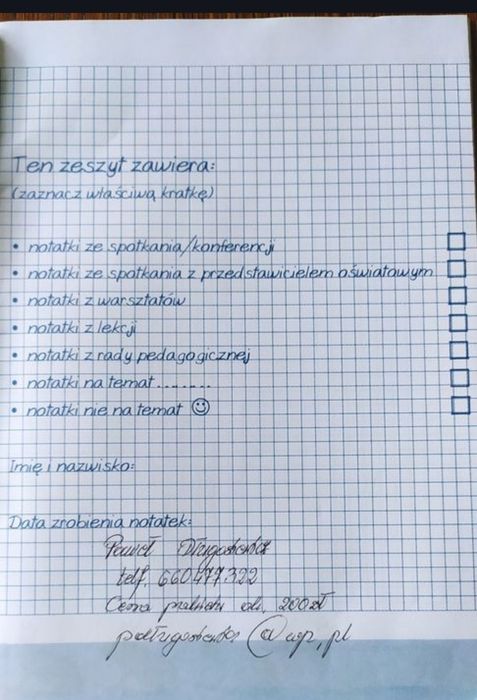 Ten zeszyt zawiera:
(zaznacz właściwą kratkę)
• notatki ze spotkania/konferencji
• notatki ze spotkania z przedstawicielem oświatowym
• notatki z warsztatów
• notatki z lekcji
• notatki z rady pedagogicznej
• notatki na temat.........
• notatki nie na temat ☺
Imię i nazwisko:
Data zrobienia notatek:
Paweł
telf. 660477322
Cena 200 zł